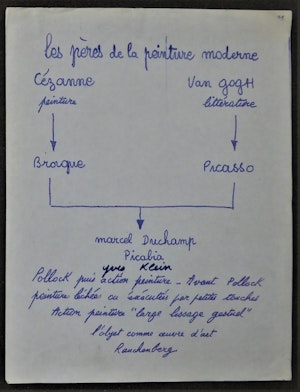 les pères de la peinture moderne
Cézanne Van gogH
peinture littérature
Braque Picasso
marcel Duchamp
Picabia
yves Klein
Pollock puis action peinture - Avant Pollock
peinture léchée ou exécutée par petites touches
Action peinture "large lissage gestuel"
l'objet comme œuvre d'art
Rauchenberg